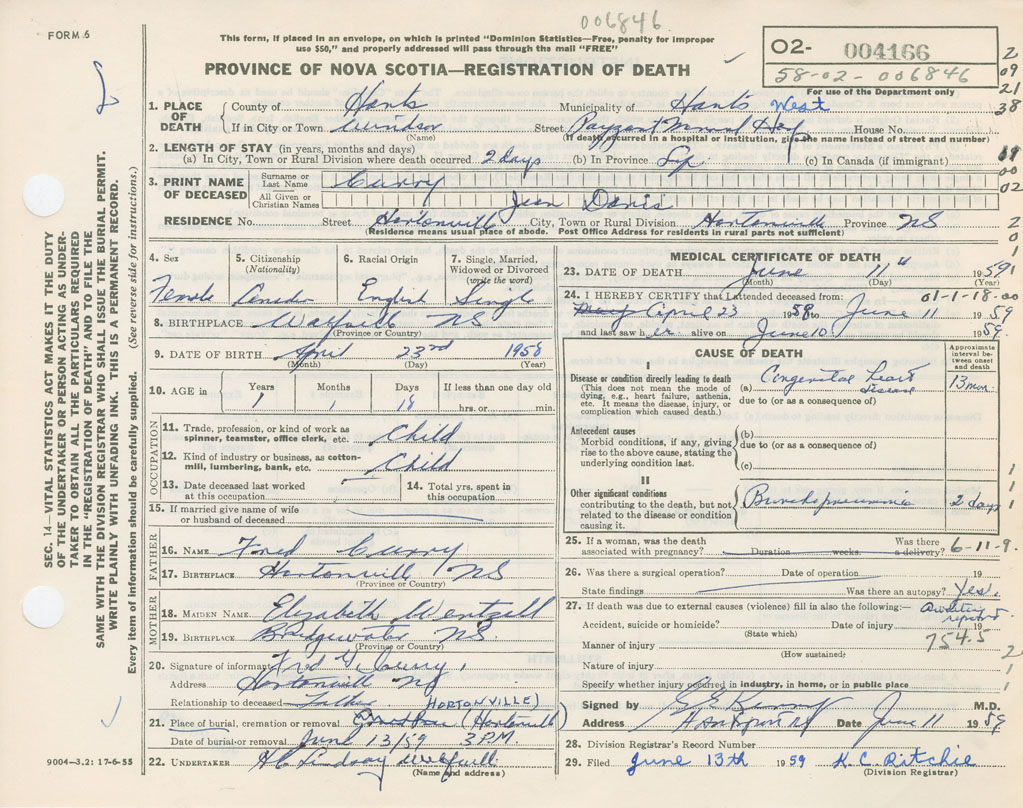 006846
FORM 6
This form, if placed in an envelope, on which is printed "Dominion Statistics—Free, penalty for improper
use $50," and properly addressed will pass through the mail "FREE"
O2- 004166
58-02-006846
For use of the Department only
PROVINCE OF NOVA SCOTIA—REGISTRATION OF DEATH
2
09
21
38
19
00
02
2
0
1
1. PLACE OF DEATH County of Hants Municipality of Hants West
If in City or Town Windsor Street Payzant Memorial Hosp House No.
(Name) (If death occurred in a hospital or institution, give the name instead of street and number)
2. LENGTH OF STAY (in years, months and days)
(a) In City, Town or Rural Division where death occurred 2 days (b) In Province (c) In Canada (if immigrant)
3. PRINT NAME OF DECEASED Surname or Last Name Curry
All Given or Christian Names Jean
RESIDENCE No. Street Hortonville City, Town or Rural Division Hortonville Province NS
(Residence means usual place of abode. Post Office Address for residents in rural parts not sufficient)
4. Sex 5. Citizenship (Nationality) 6. Racial Origin 7. Single, Married, Widowed or Divorced (write the word)
Female Canada English Single
8. BIRTHPLACE Wolfville NS
(Province or Country)
9. DATE OF BIRTH April 23rd 1958
(Month) (Day) (Year)
10. AGE in Years Months Days If less than one day old
1 1 18 hrs. or min.
OCCUPATION
11. Trade, profession, or kind of work as spinner, teamster, office clerk, etc. Child
12. Kind of industry or business, as cotton-mill, lumbering, bank, etc. Child
13. Date deceased last worked at this occupation 14. Total yrs. spent in this occupation
15. If married give name of wife or husband of deceased
FATHER
16. NAME Fred Curry
17. BIRTHPLACE Hortonville NS
(Province or Country)
MOTHER
18. MAIDEN NAME Elizabeth Wentzell
19. BIRTHPLACE Bridgewater NS.
(Province or Country)
20. Signature of informant Fred Curry
Address Hortonville NS
Relationship to deceased Father (HORTONVILLE)
21. Place of burial, cremation or removal (Hortonville)
Date of burial or removal June 13/59 3 P.M.
22. UNDERTAKER H C Lindsay Wolfville
(Name and address)
MEDICAL CERTIFICATE OF DEATH
23. DATE OF DEATH June 11th 1959
(Month) (Day) (Year)
24. I HEREBY CERTIFY that I attended deceased from: 01-1-18-00
April 23 1958 to June 11 1959
and last saw her alive on June 10 1959.
CAUSE OF DEATH
Approximate interval between onset and death
I
Disease or condition directly leading to death
(This does not mean the mode of dying, e.g., heart failure, asthenia, etc. It means the disease, injury, or complication which caused death.)
(a) Congenital Heart Disease 13 mon.
due to (or as a consequence of)
Antecedent causes
Morbid conditions, if any, giving rise to the above cause, stating the underlying condition last.
(b)
due to (or as a consequence of)
(c)
II
Other significant conditions contributing to the death, but not related to the disease or condition causing it.
Bronchopneumonia 2 days
1
1
1
25. If a woman, was the death associated with pregnancy? Duration weeks. Was there a delivery? 6-11-9.
26. Was there a surgical operation? Date of operation 19
State findings Was there an autopsy? Yes.
27. If death was due to external causes (violence) fill in also the following:— Awaiting report
Accident, suicide or homicide? Date 19
(State which) 754.5
Manner of injury 2
(How sustained)
Nature of injury
Specify whether injury occurred in industry, in home, or in public place 1
Signed by M.D.
Address Hantsport NS Date June 11 1959.
28. Division Registrar's Record Number
29. Filed June 13th 1959 K. C. Ritchie
(Division Registrar)
SEC. 14—VITAL STATISTICS ACT MAKES IT THE DUTY
OF THE UNDERTAKER OR PERSON ACTING AS UNDER-
TAKER TO OBTAIN ALL THE PARTICULARS REQUIRED
IN THE "REGISTRATION OF DEATH" AND TO FILE THE
SAME WITH THE DIVISION REGISTRAR WHO SHALL ISSUE THE BURIAL PERMIT.
WRITE PLAINLY WITH UNFADING INK. THIS IS A PERMANENT RECORD.
Every item of information should be carefully supplied. (See reverse side for instructions.)
9004-3,2: 17-6-55